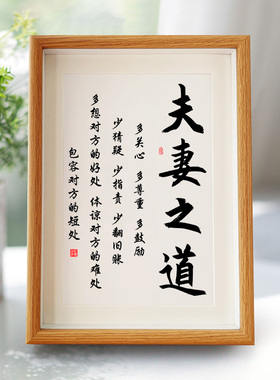 夫妻之道
多关心 多尊重 多鼓励
少猜疑 少指责 少翻旧账
多想对方的好处 体谅对方的难处
包容对方的短处